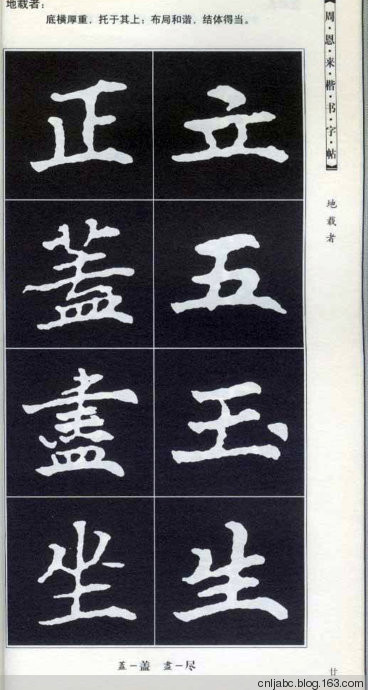 地载者：
底横厚重，托于其上；布局和谐，结体得当。
【周·恩·来·楷·书·字·帖】
地载者
立五玉生
正蓋盡坐
蓋－盖 盡－尽
廿
cnljabc.blog.163.com